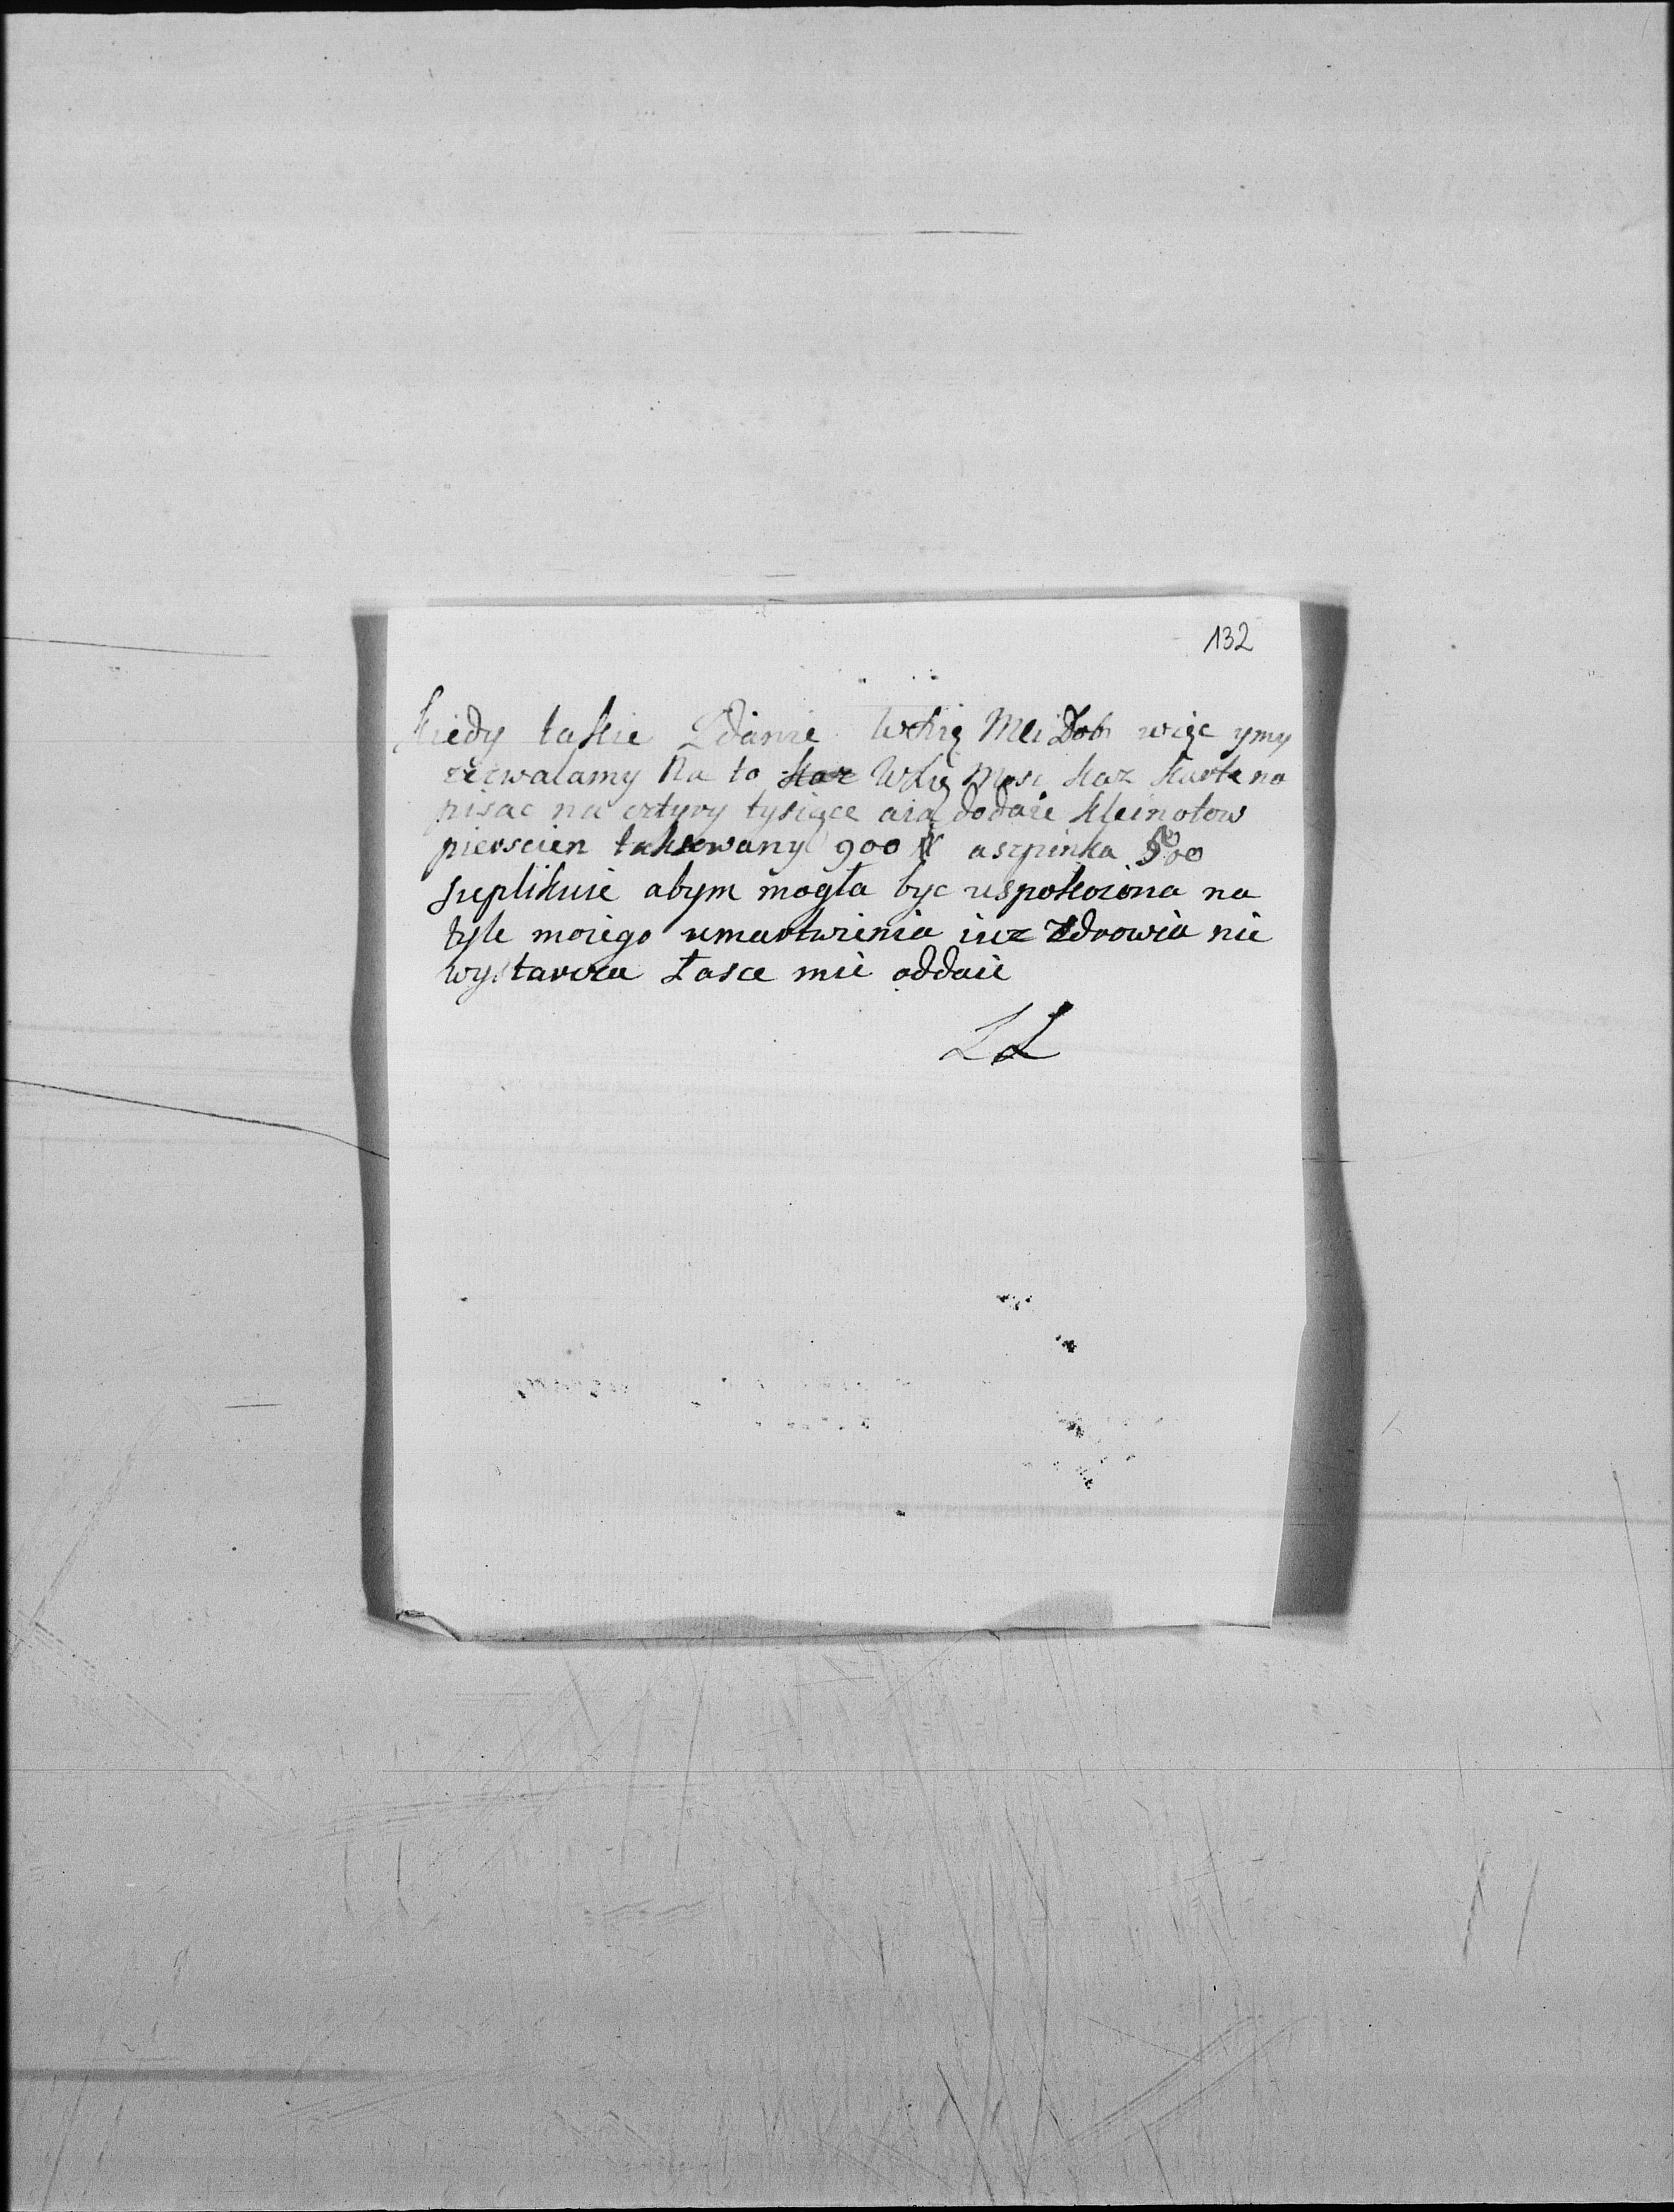 132
Kiedy takie Zdanie WXię Mci Dob więc ymy
zezwalamy Na to kaz WXię Mosc kaz karte na
pisac na cztyry tysiące aia dodaie kleinotow
pierscien taksowany 900 # aszpinka 500
suplikuie abym mogła byc uspokoiona na
tyle moiego umartwienia iuz Zdrowia nie
wystarcza Łasce mie oddaie
LL